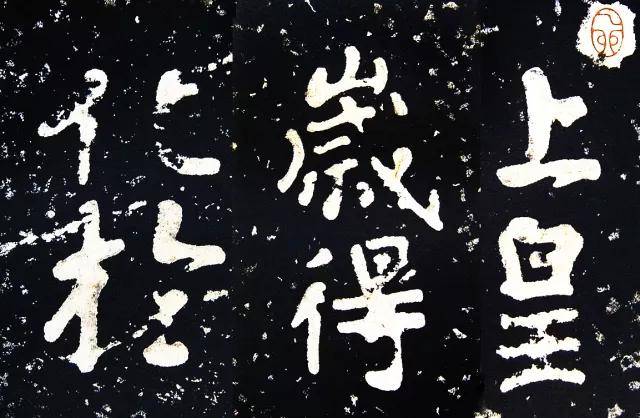 上皇
歲得
化於